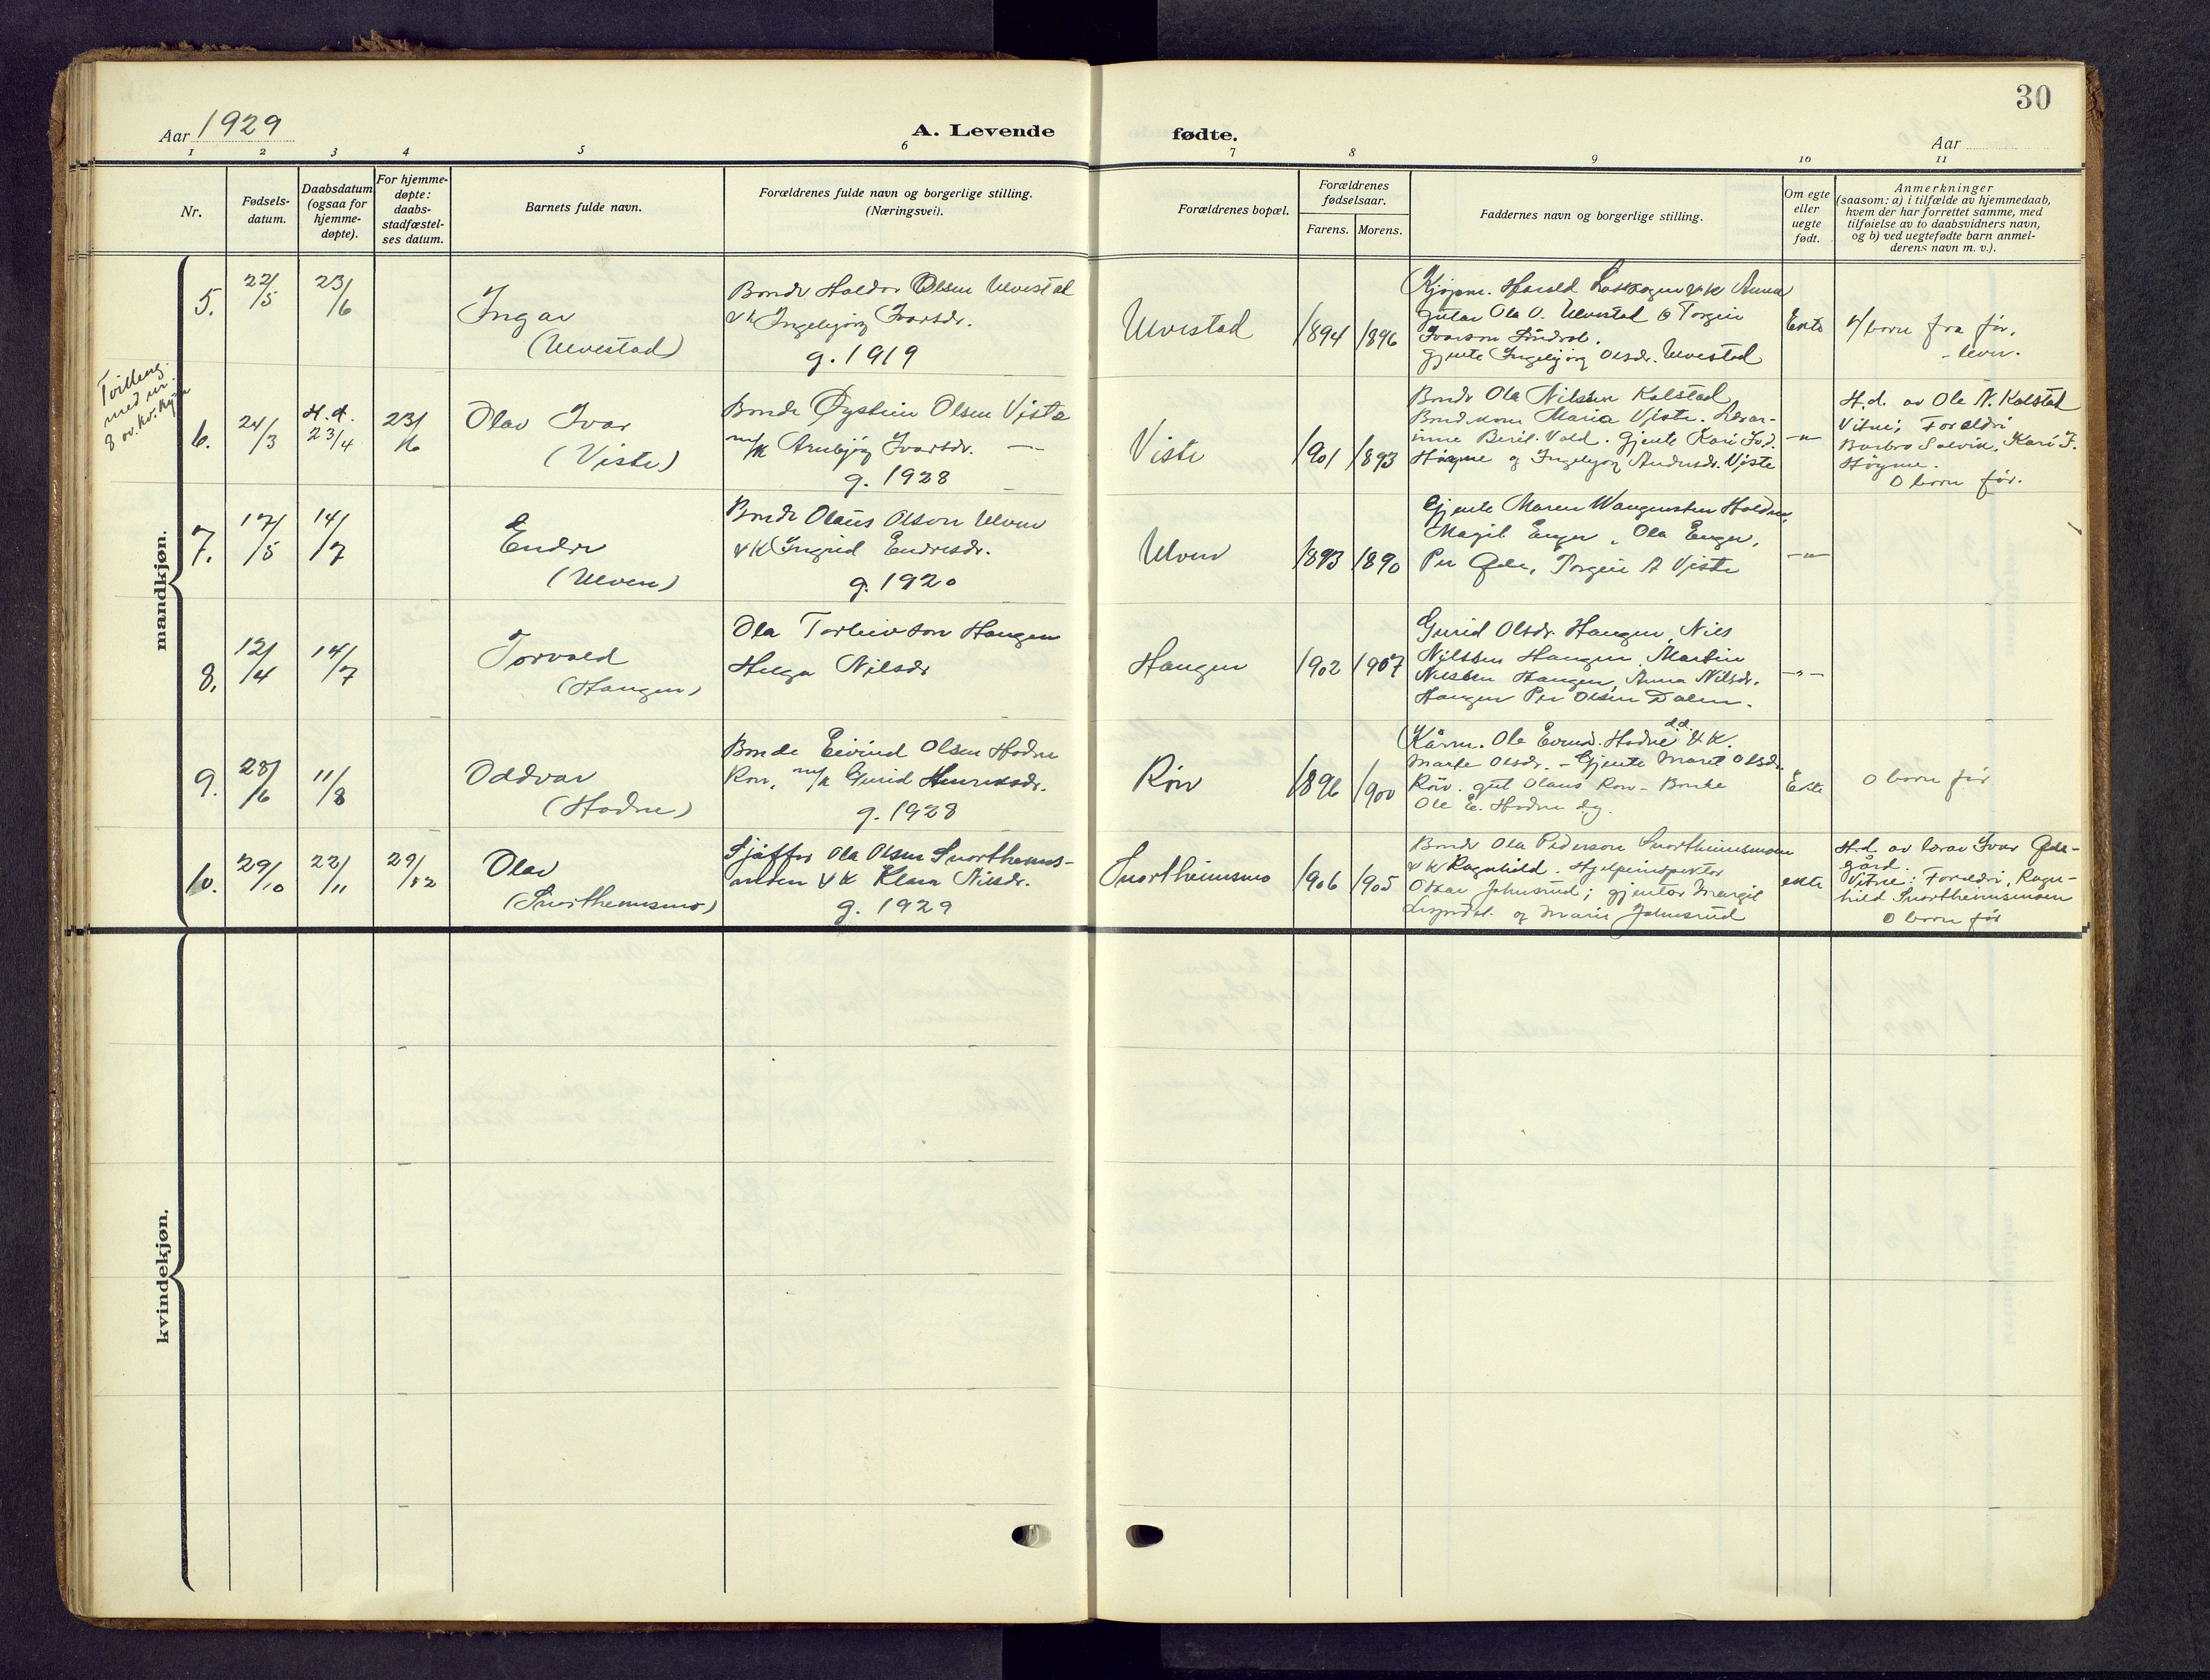 30
Aar 1929
A. Levende
fødte.
Aar
1 2 3 4 5 6 7 8 9 10 11
Nr.
Fødsels-
datum.
Daabsdatum
(ogsaa for
hjemme-
døpte).
For hjemme-
døpte:
daabs-
stadfæstel-
ses datum.
Barnets fulde navn.
Forældrenes fulde navn og borgerlige stilling.
(Næringsvei).
Forældrenes bopæl.
Forældrenes
fødselsaar.
Farens. Morens.
Faddernes navn og borgerlige stilling.
Om egte
eller
uegte
født.
Anmerkninger
(saasom: a) i tilfælde av hjemmedaab,
hvem der har forrettet samme, med
tilføielse av to daabsvidners navn,
og b) ved uegtefødte barn anmel-
derens navn m. v.).
mandkjøn.
5.
22/5
23/6
Ingar
(Ulvestad)
Bonde Haldor Olsen Ulvestad
& k Ingebjørg Ivarsdr.
g. 1919
Ulvestad
1894 1896
Kjøpm. Harald & k Anna
Gutar Ola O. Ulvestad & Torgir
Ivarson
gjente Ingebjørg Olsdr. Ulvestad
Ekte
4 born fra før,
- lever.
Tvilling
med nr.
8 av kv.kjøn
6.
24/3
H.d.
23/4
23/6
Olav Ivar
(Viste)
Bonde Øystein Olsen Viste
m/k Arnbjørg Ivarsdr. —
g. 1928
Viste
1901 1893
Bonde Ola Nilssen Kolstad
Bondekone Maria Viste. Lærar-
inne Beril Vold. Gjente Kari Iv.d.
Høyme og Ingebjørg Andrisdr. Viste
-"-
H.d. av Ole N. Kolstad
Vitne: Foreldri
Barbro Solvik. Kari I.
Høyme.
0 born før.
7.
17/5
14/7
Endre
(Ulven)
Bonde Olaus Olson Ulven
& k Ingrid Endresdr.
g. 1920
Ulven
1893 1890
Gjente Maren Wangensten
Magit Enger, Ola Enger,
Per Torgir A Viste
-"-
8.
12/4
14/7
Torvald
(Haugen)
Ola Torleivson Haugen
Helga Nilsdr
Haugen
1902 1907
Gurid Olsdr. Haugen, Nils
Nilssen Haugen, Martin
Nilssen Haugen, Anna Nilsdr.
Haugen Per Olsen Dalen.
-"-
9.
28/6
11/8
Oddvar
(Hodne)
Bonde Eivind Olsen Hodne
Røn, m/k Gurid Henriksdr.
g. 1928
Røn
1896 1900
Kårm. Ole Hodne d.d. & k.
Marte Olsdr. - Gjente Marit Olsdr.
Røn. gut Olaus Røn - Bonde
Ole E. Hodne dy.
Ekte
0 born før
10.
29/10
22/11
29/12
Olav
(Snortheimsmo)
Sjåffør Ola Olsen Snortheims-
moen & k Klara Nilsdr.
g. 1929
Snortheimsmo
1906 1905
Bonde Ola Pederson Snortheimsmoen
& k Ragnhild. Hjelpeinspektør
Oskar Johnsrud; gjentor Margit
og Marie Johnsrud
ekte
H.d. av lærar Ivar
gård.
Vitne: Foreldri, Ragn-
hild Snortheimsmoen
0 born før
kvindekjøn.